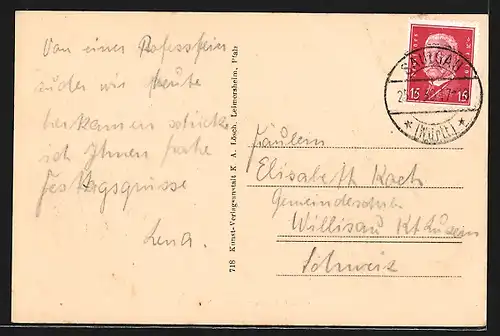 Von einer
wir heute
ich Ihnen frohe
Festtagsgrüsse
Lena.
718 Kunst-Verlagsanstalt K. A. Lösch, Leimersheim, Pfalz
SAULGAU
(WÜRTT)
15 15
Fräulein
Elisabeth Koch
Gemeindeschrb.
Willisau Kt Luzern
Schweiz